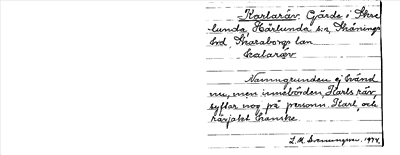 Karlaräv. Gärde i Skre
lunda, Härlunda s:n, Skånings
hd, Skaraborgs län.
Kalaräv
Namngrunden ej känd
nu, men innebörden, Karls räv,
syftar nog på personn. Karl, och
rävjakt kanske.
L. M. Svenungsson. 1974.